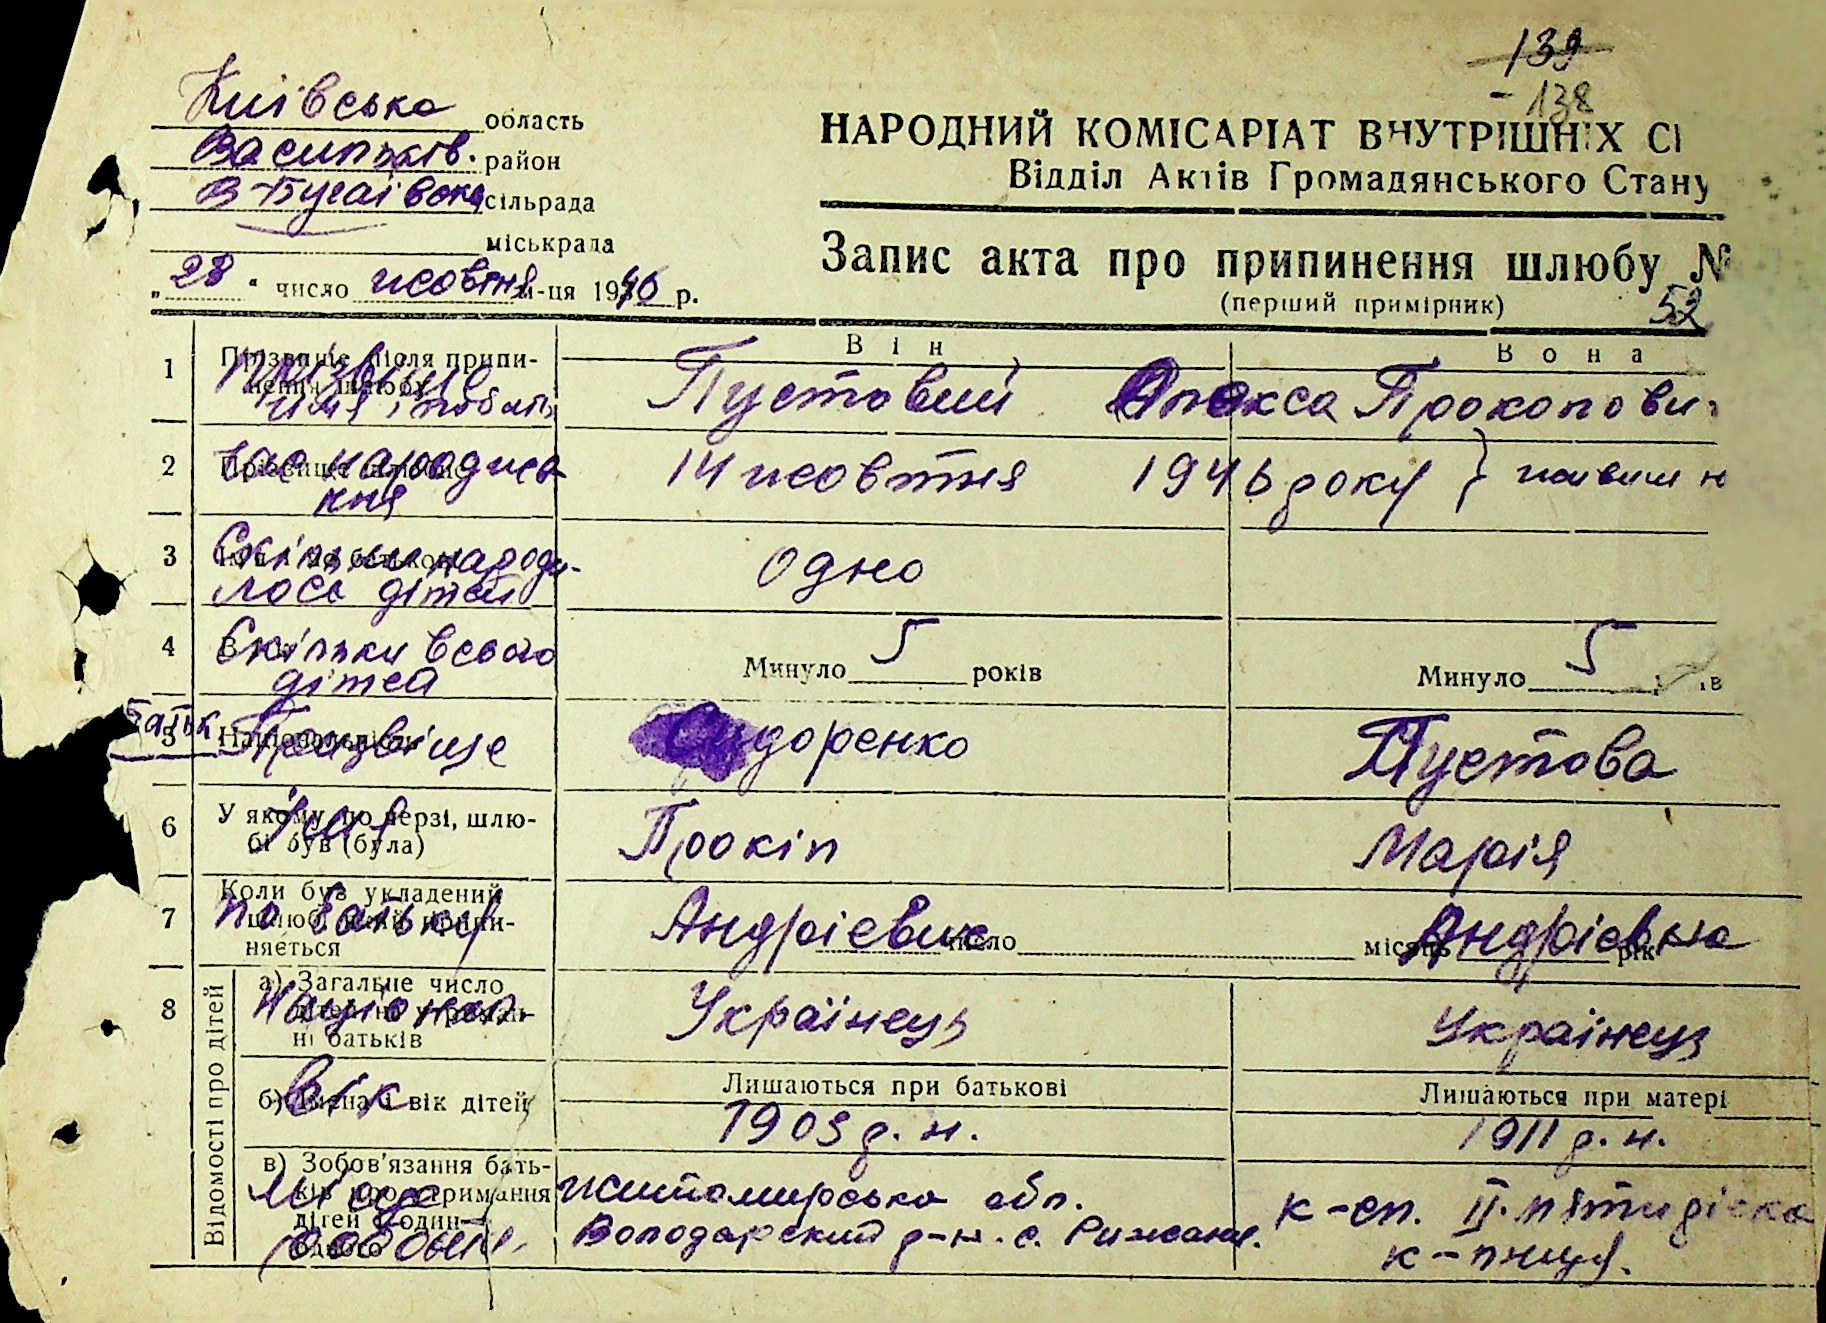 139
138
Київська область
Васильків. район
В-Бугаївська сільрада
міськрада
НАРОДНИЙ КОМІСАРІАТ ВНУТРІШНІХ С
Відділ Актів Громадянського Стану
„28“ число жовтня м-ця 1946 р.
Запис акта про припинення шлюбу №
(перший примірник) 52
Він
Вона
1 Прізвище після припинення шлюбу
Прізвище імя, по бать
Пустовий Олекса Прокопови
2 Прізвище
час народже
ння
14 жовтня 1946 року } живим н
3 Скільки народи-
лось дітей
одно
4 Скільки всього
дітей
Минуло 5 років
Минуло 5
5 Національність
Батьк. Прізвіще
Сидоренко
Пустова
6 У якому, по черзі, шлю-
бі був (була)
імя
Прокіп
Марія
7 Коли був укладений
шлюб, який припи-
няється
по батьку
Андрієвич число
місяць Андрієвна рік
8 Відомості про дітей
а) Загальне число
ні батьків
Націонал.
Українець
Українець
б) Імена і вік дітей
вік
Лишаються при батькові
Лишаються при матері
1903 р. н.
1911 р. н.
в) Зобов'язання бать-
ків про утримання
дітей
Місце
роботи
Житомирська обл.
Володарский р-н. с. Рижани.
к-сп. II. пятирічка
к-пниця.